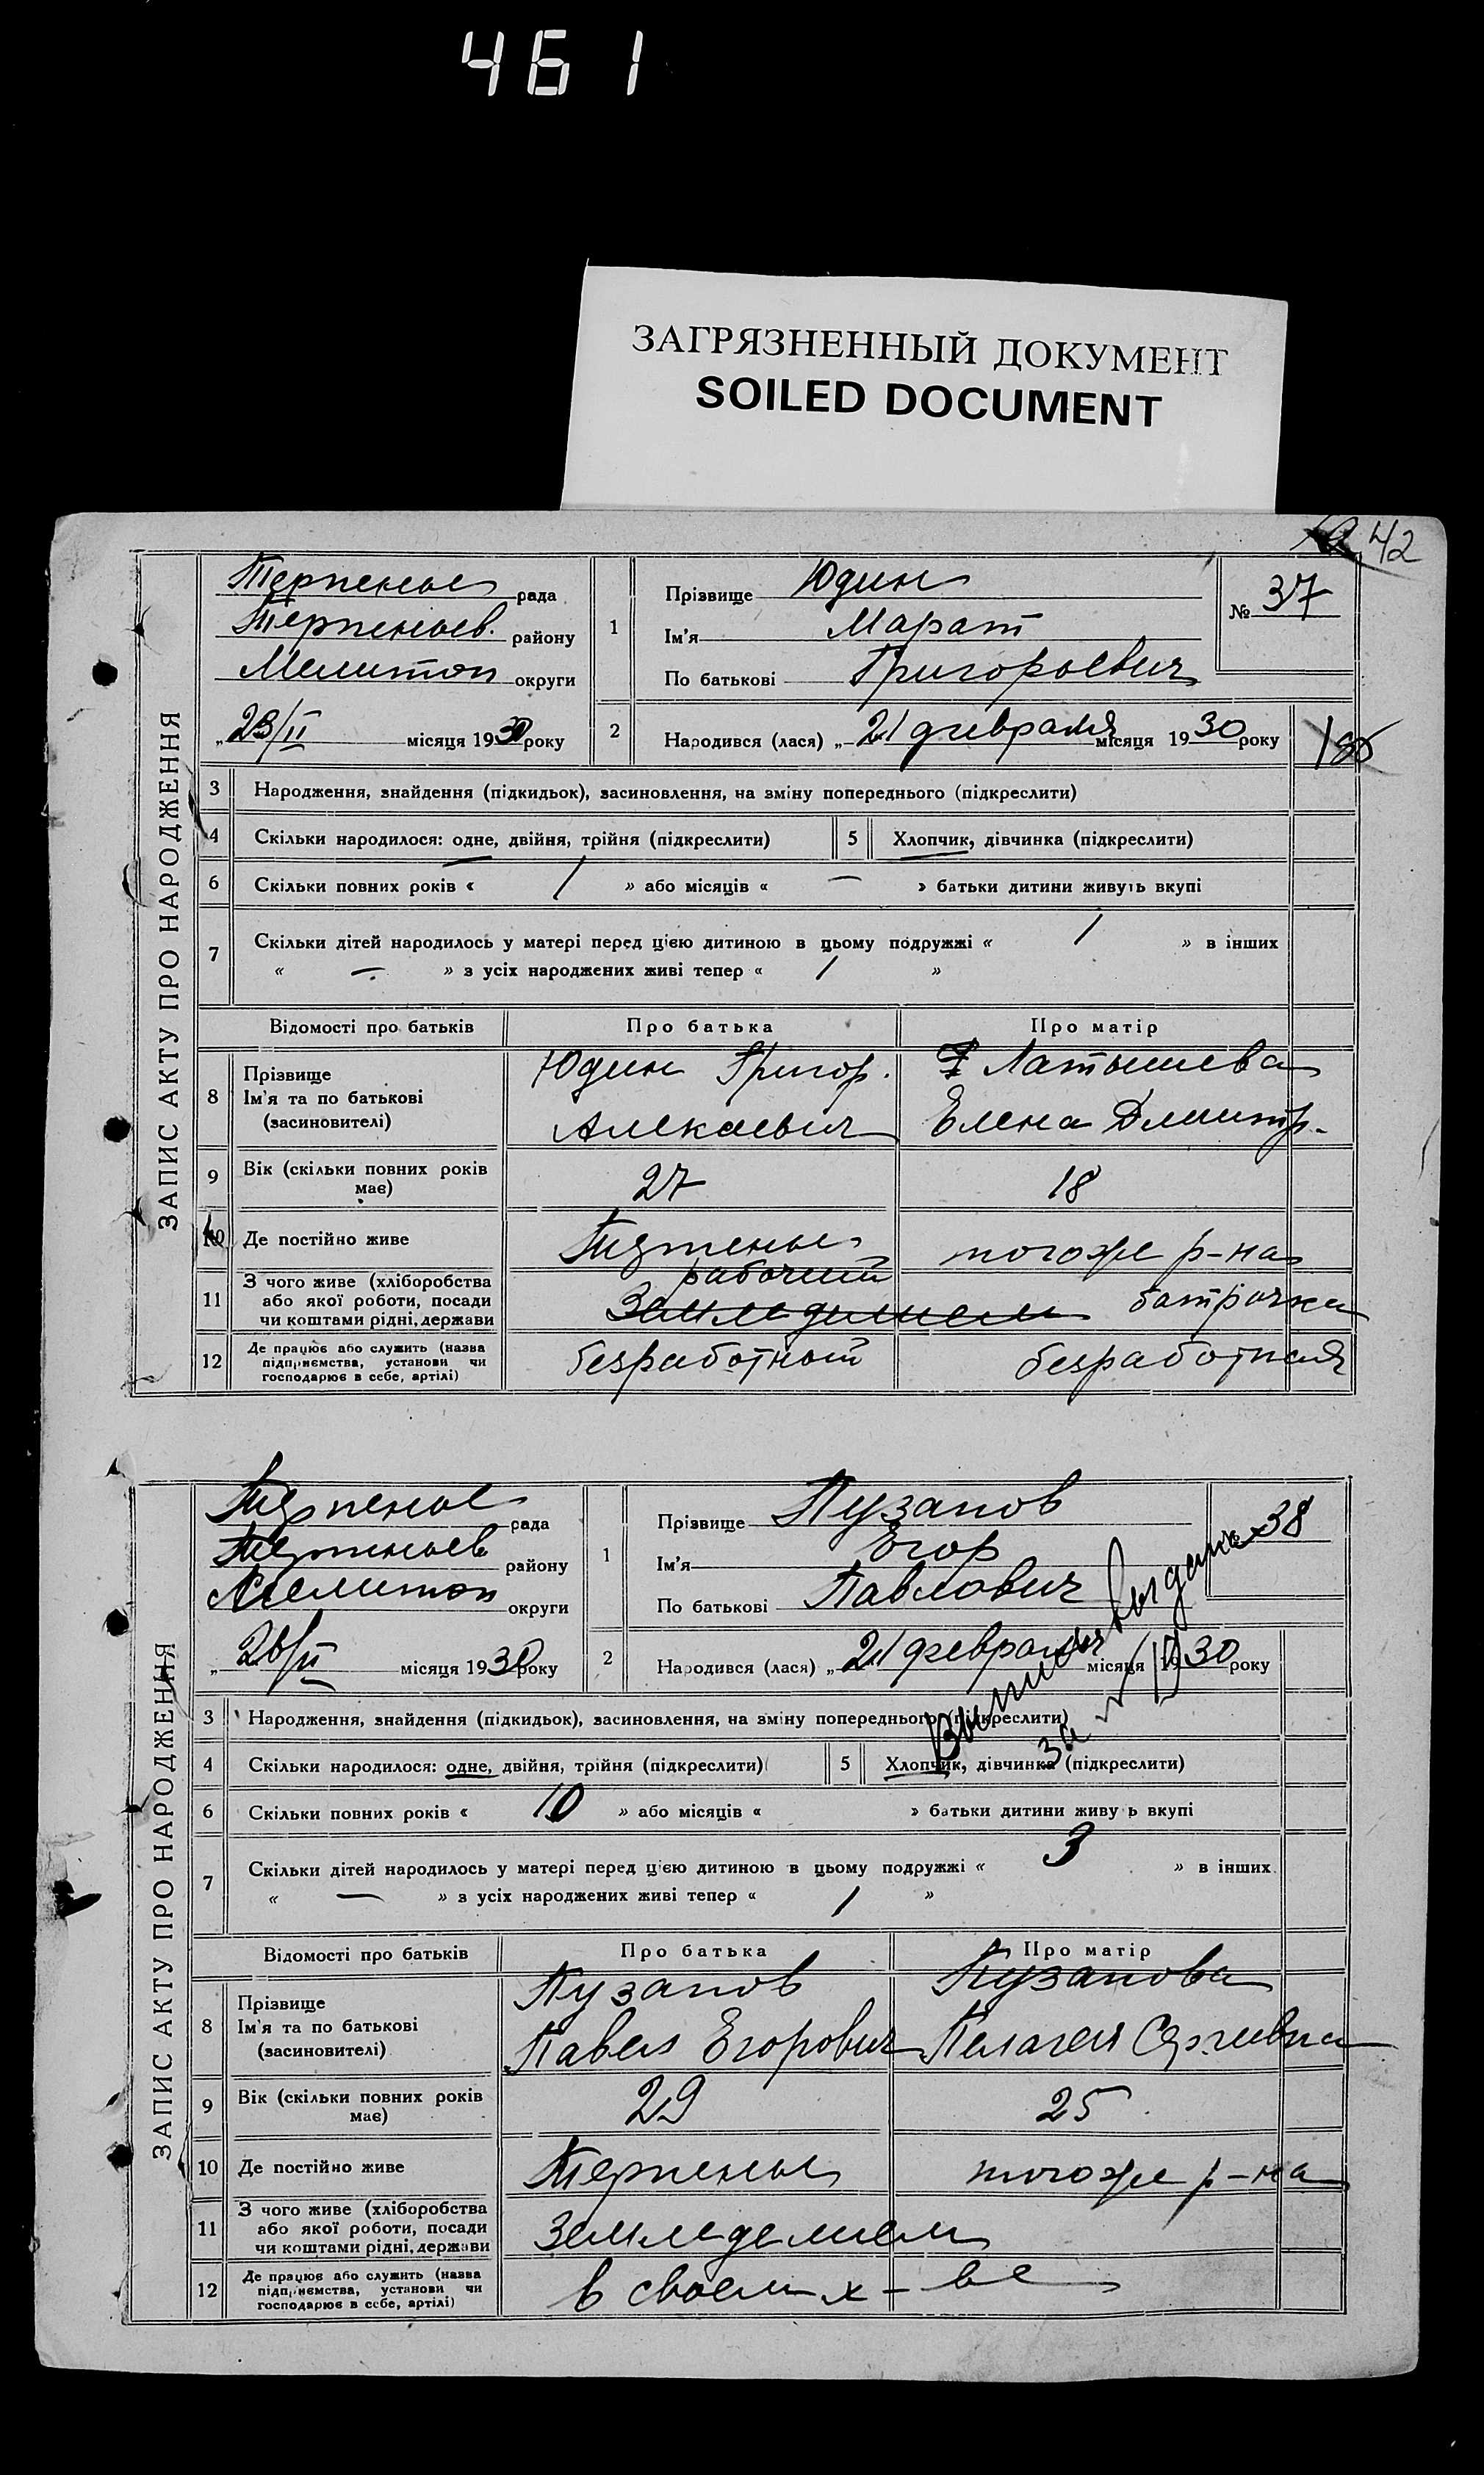 461
ЗАГРЯЗНЕННЫЙ ДОКУМЕНТ
SOILED DOCUMENT
42
ЗАПИС АКТУ ПРО НАРОДЖЕННЯ
Терпенье рада
Терпеньев. району
Мелитоп округи
„23/II місяця 1930 року
1
Прізвище Юдин
Ім'я Марат
По батькові Григорьевич
№ 37
2
Народився (лася) „21 февраля місяця 1930 року
3 Народження, знайдення (підкидьок), засиновлення, на зміну попереднього (підкреслити)
4 Скільки народилося: одне, двійня, трійня (підкреслити) 5 Хлопчик, дівчинка (підкреслити)
6 Скільки повних років « 1 » або місяців « — » батьки дитини живуть вкупі
7 Скільки дітей народилось у матері перед цією дитиною в цьому подружжі « 1 » в інших
« — » з усіх народжених живі тепер « 1 »
Відомості про батьків Про батька Про матір
8 Прізвище
Ім'я та по батькові
(засновителі)
Юдин Григор.
Алекаевич
Латышева
Елена Дмитр.
9 Вік (скільки повних років
має) 27 18
10 Де постійно живе Терпенье того же р-на
11 З чого живе (хліборобства
або якої роботи, посади
чи коштами рідні, держави
рабочий
Земледелием
батрачка
12 Де працює або служить (назва
підприємства, установи чи
господарює в себе, артілі)
безработный безработная
ЗАПИС АКТУ ПРО НАРОДЖЕННЯ
Терпенье рада
Терпеньев району
Мелитоп округи
„26/II місяця 1930 року
1
Прізвище Пузанов
Ім'я Егор
По батькові Павлович
38
2
Народився (лася) „21 февраля місяця 1930 року
выдана
за №
3 Народження, знайдення (підкидьок), засиновлення, на зміну попереднього (підкреслити)
4 Скільки народилося: одне, двійня, трійня (підкреслити) 5 Хлопчик, дівчинка (підкреслити)
6 Скільки повних років « 10 » або місяців « » батьки дитини живуь вкупі
7 Скільки дітей народилось у матері перед цією дитиною в цьому подружжі « 3 » в інших
« — » з усіх народжених живі тепер « 1 »
Відомості про батьків Про батька Про матір
8 Прізвище
Ім'я та по батькові
(засиновителі)
Пузанов
Павел Егорович
Пузанова
Пелагея Сергеевна
9 Вік (скільки повних років
має) 29 25
10 Де постійно живе Терпенье того же р-на
11 З чого живе (хліборобства
або якої роботи, посади
чи коштами рідні, держави
Земледелием
12 Де працює або служить (назва
підприємства, установи чи
господарює в себе, артілі)
в своем х-ве